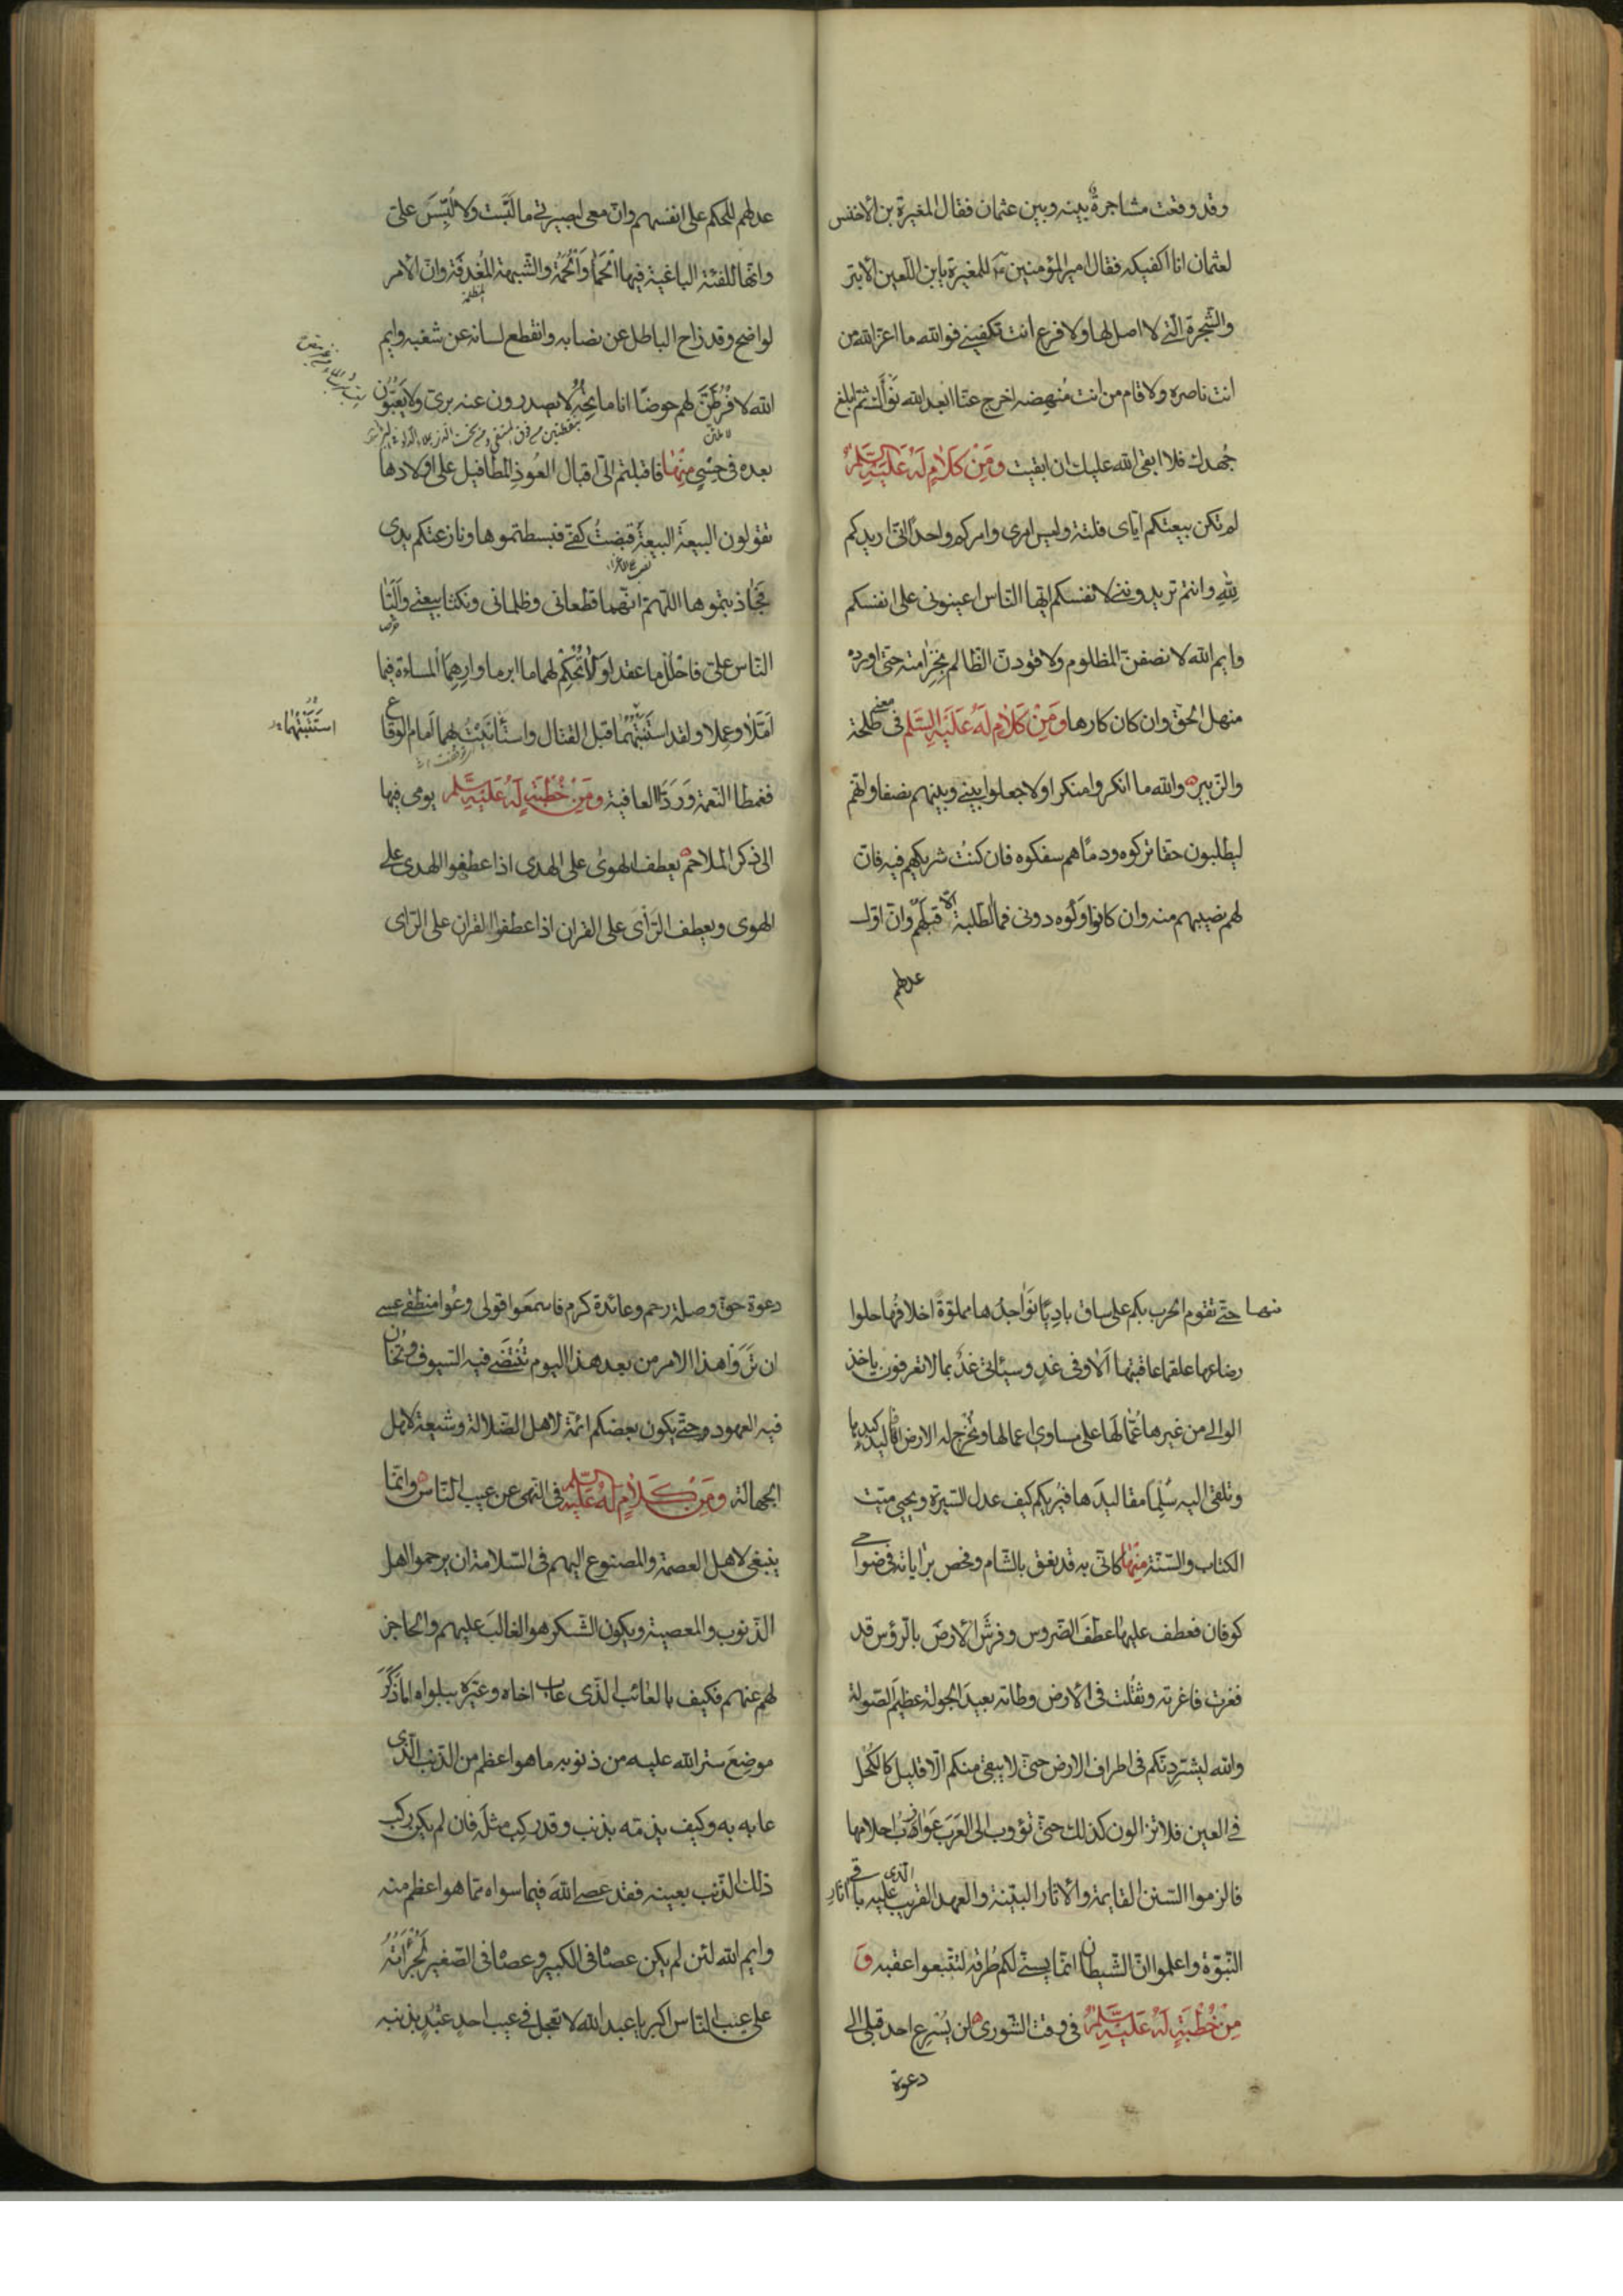 وقد وقعت مشاجرة بينه وبين عثمان فقال المغيرة بن الاخنس
لعثمان انا اكفيكه فقال امير المؤمنين للمغيرة يابن اللعين الابتر
والشجرة الّتي لا اصل لها ولا فرع انت تكفيني فوالله ما اعزّ الله من
انت ناصره ولا قام من انت مُنهِضه اخرج عنّا ابعد الله نَواك ثم ابلغ
جُهدك فلا ابقى الله عليك ان ابقيت وَمِنْ كَلَامٍ لَهُ عَلَيْهِ السَّلَمُ
لم تكن بيعتكم ايّاى فلتة وليس امرى وامركم واحدًا انّى اريدكم
لِلّهِ وانتم تريدوننى لانفسكم ايّها النّاس اعينونى على انفسكم
وايم الله لانصفنّ المظلوم ولاقودنّ الظالم بِخِزامته حتّى اورده
منهل الحقّ وان كان كارها وَمِنْ كَلَامٍ لَهُ عَلَيْهِ السَّلَم فى معنى طلحة
والزبير والله ما انكروا منكرا ولا جعلوا بينى وبينهم نصفا وانّهم
ليطلبون حقا تركوه ودمًا هم سفكوه فان كنتُ شريكهم فيه فانّ
لهم نصيبهم منه وان كانوا وَلُوه دونى فما الطّلبة الّا قبلهم وانّ اوّل
عدلهم
عدلهم للحكم على انفسهم وانّ معى لبصيرتى ما لَبَّست ولا لُبِّسَ علىّ
وانّها للفئة الباغية فيها الحَمَأُ والحُمَّةُ والشّبهة المُغدِقَة وانّ الامر
لواضح وقد زاح الباطل عن نصابه وانقطع لسانه عن شغبه وايم
الله لافْرُطَنَّ لهم حوضًا انا ماتِحُهُ لا يصدرون عنه برىّ ولا يَعُبّون
بعده فى حِسْىٍ مِنْهَا فاقبلتم الىّ اقبال العُوذِ المطافيل على اولادها
تقولون البيعةَ البيعةَ قبضتُ كفّى فبسطتموها ونازعتكم يدى
فجاذبتموها اللهمّ انّهما قطعانى وظلمانى ونكثا بيعتى وَاَلّبَا
النّاس علىّ فاحْلُلْ ما عقدا ولا تُحْكِمْ لهما ما ابرما وارهما المساءة فيما
اَمّلا وعملا ولقد استثبتهما قبل القتال واستأنَيتُ بهما امام الوقاع
استَثَبْتُهُمَا
فغمطا النّعمة وَرَدّا العافية وَمِنْ خُطْبَةٍ لَهُ عَلَيْهِ السَّلَم يومى فيها
الى ذكر الملاحم يعطف الهوى على الهدى اذا عطفوا الهدى على
الهوى ويعطف الرّأى على القران اذا عطفوا القران على الرّاى
منها حتّى تقوم الحرب بكم على ساق بادِيًا نَواجِذُها مملوّةً اخلافُها حلوا
رضاعها علقما عاقبتها اَلا وفى غدٍ وسيئاتى غدٌ بما لا تعرفون ياخذ
الوالى من غيرها عُمّالَها على مساوى اعمالها وتُخرج له الارض افاليذ كبدها
وتلقى اليه سِلْمًا مقاليدَها فيُريكم كيف عدل السّيرة ويحيى ميّت
الكتاب والسّنة مِنْهَا كانّى به قد نعق بالشّام وفحص براياته فى ضواحى
كوفان فعطف عليها عطفَ الضّروس وفرشَ الارضَ بالرّؤس قد
فغرت فاغرته وثقُلت فى الارض وطاته بعيدَ الجولة عظيمَ الصّولة
والله ليشرّدنّكم فى اطراف الارض حتّى لا يبقى منكم الّا قليل كالكُحل
فى العين فلا تزالون كذلك حتّى تؤوب الى العَرَب عَوازِبُ احلامها
فالزموا السّنن القايمة والاثار البيّنة والعهد القريب الّذى عليه باقى اثار
النّبوّة واعلموا انّ الشّيطان انّما يسنّى لكم طُرقه لتتّبعوا عقبه وَ
مِنْ خُطْبَةٍ لَهُ عَلَيْهِ السَّلَمُ فى وقت الشّورى لن يُسْرِع احد قبلى الى
دعوة
دعوة حق وصلة رحم وعائدة كرم فاسمعوا قولى وعُوا منطقى عسى
ان تَرَوا هذا الامر من بعد هذا اليوم تُنْتَضى فيه السّيوف وتُخان
فيه العهود وحتّى يكون بعضكم ائمّة لاهل الضّلالة وشيعة لاهل
الجهالة وَمِنْ كَلَامٍ لَهُ عَلَيْهِ السَّلَم فى النّهى عن عيب النّاس وانّما
ينبغى لاهل العصمة والمصنوع اليهم فى السّلامة ان يرحموا اهل
الذّنوب والمعصية ويكون الشّكر هو الغالبَ عليهم والحاجز
لهم عنهم فكيف بالغائب الّذى عاب اخاه وعيّره ببلواه اما ذَكَرَ
موضِعَ ستر الله عليه من ذنوبه ما هو اعظم من الذّنب الّذى
عابه به وكيف يذمّه بذنب وقد ركب مثلَه فان لم يكن ركب
ذلك الذّنب بعينه فقد عصى اللهَ فيما سواه ممّا هو اعظم منه
وايم الله لئن لم يكن عصاه فى الكبير وعصاه فى الصّغير لَجُرْأَتُهُ
على عيب النّاس اكبر يا عبد الله لا تعجل فى عيب احدٍ عَبْدٍ بذنبه